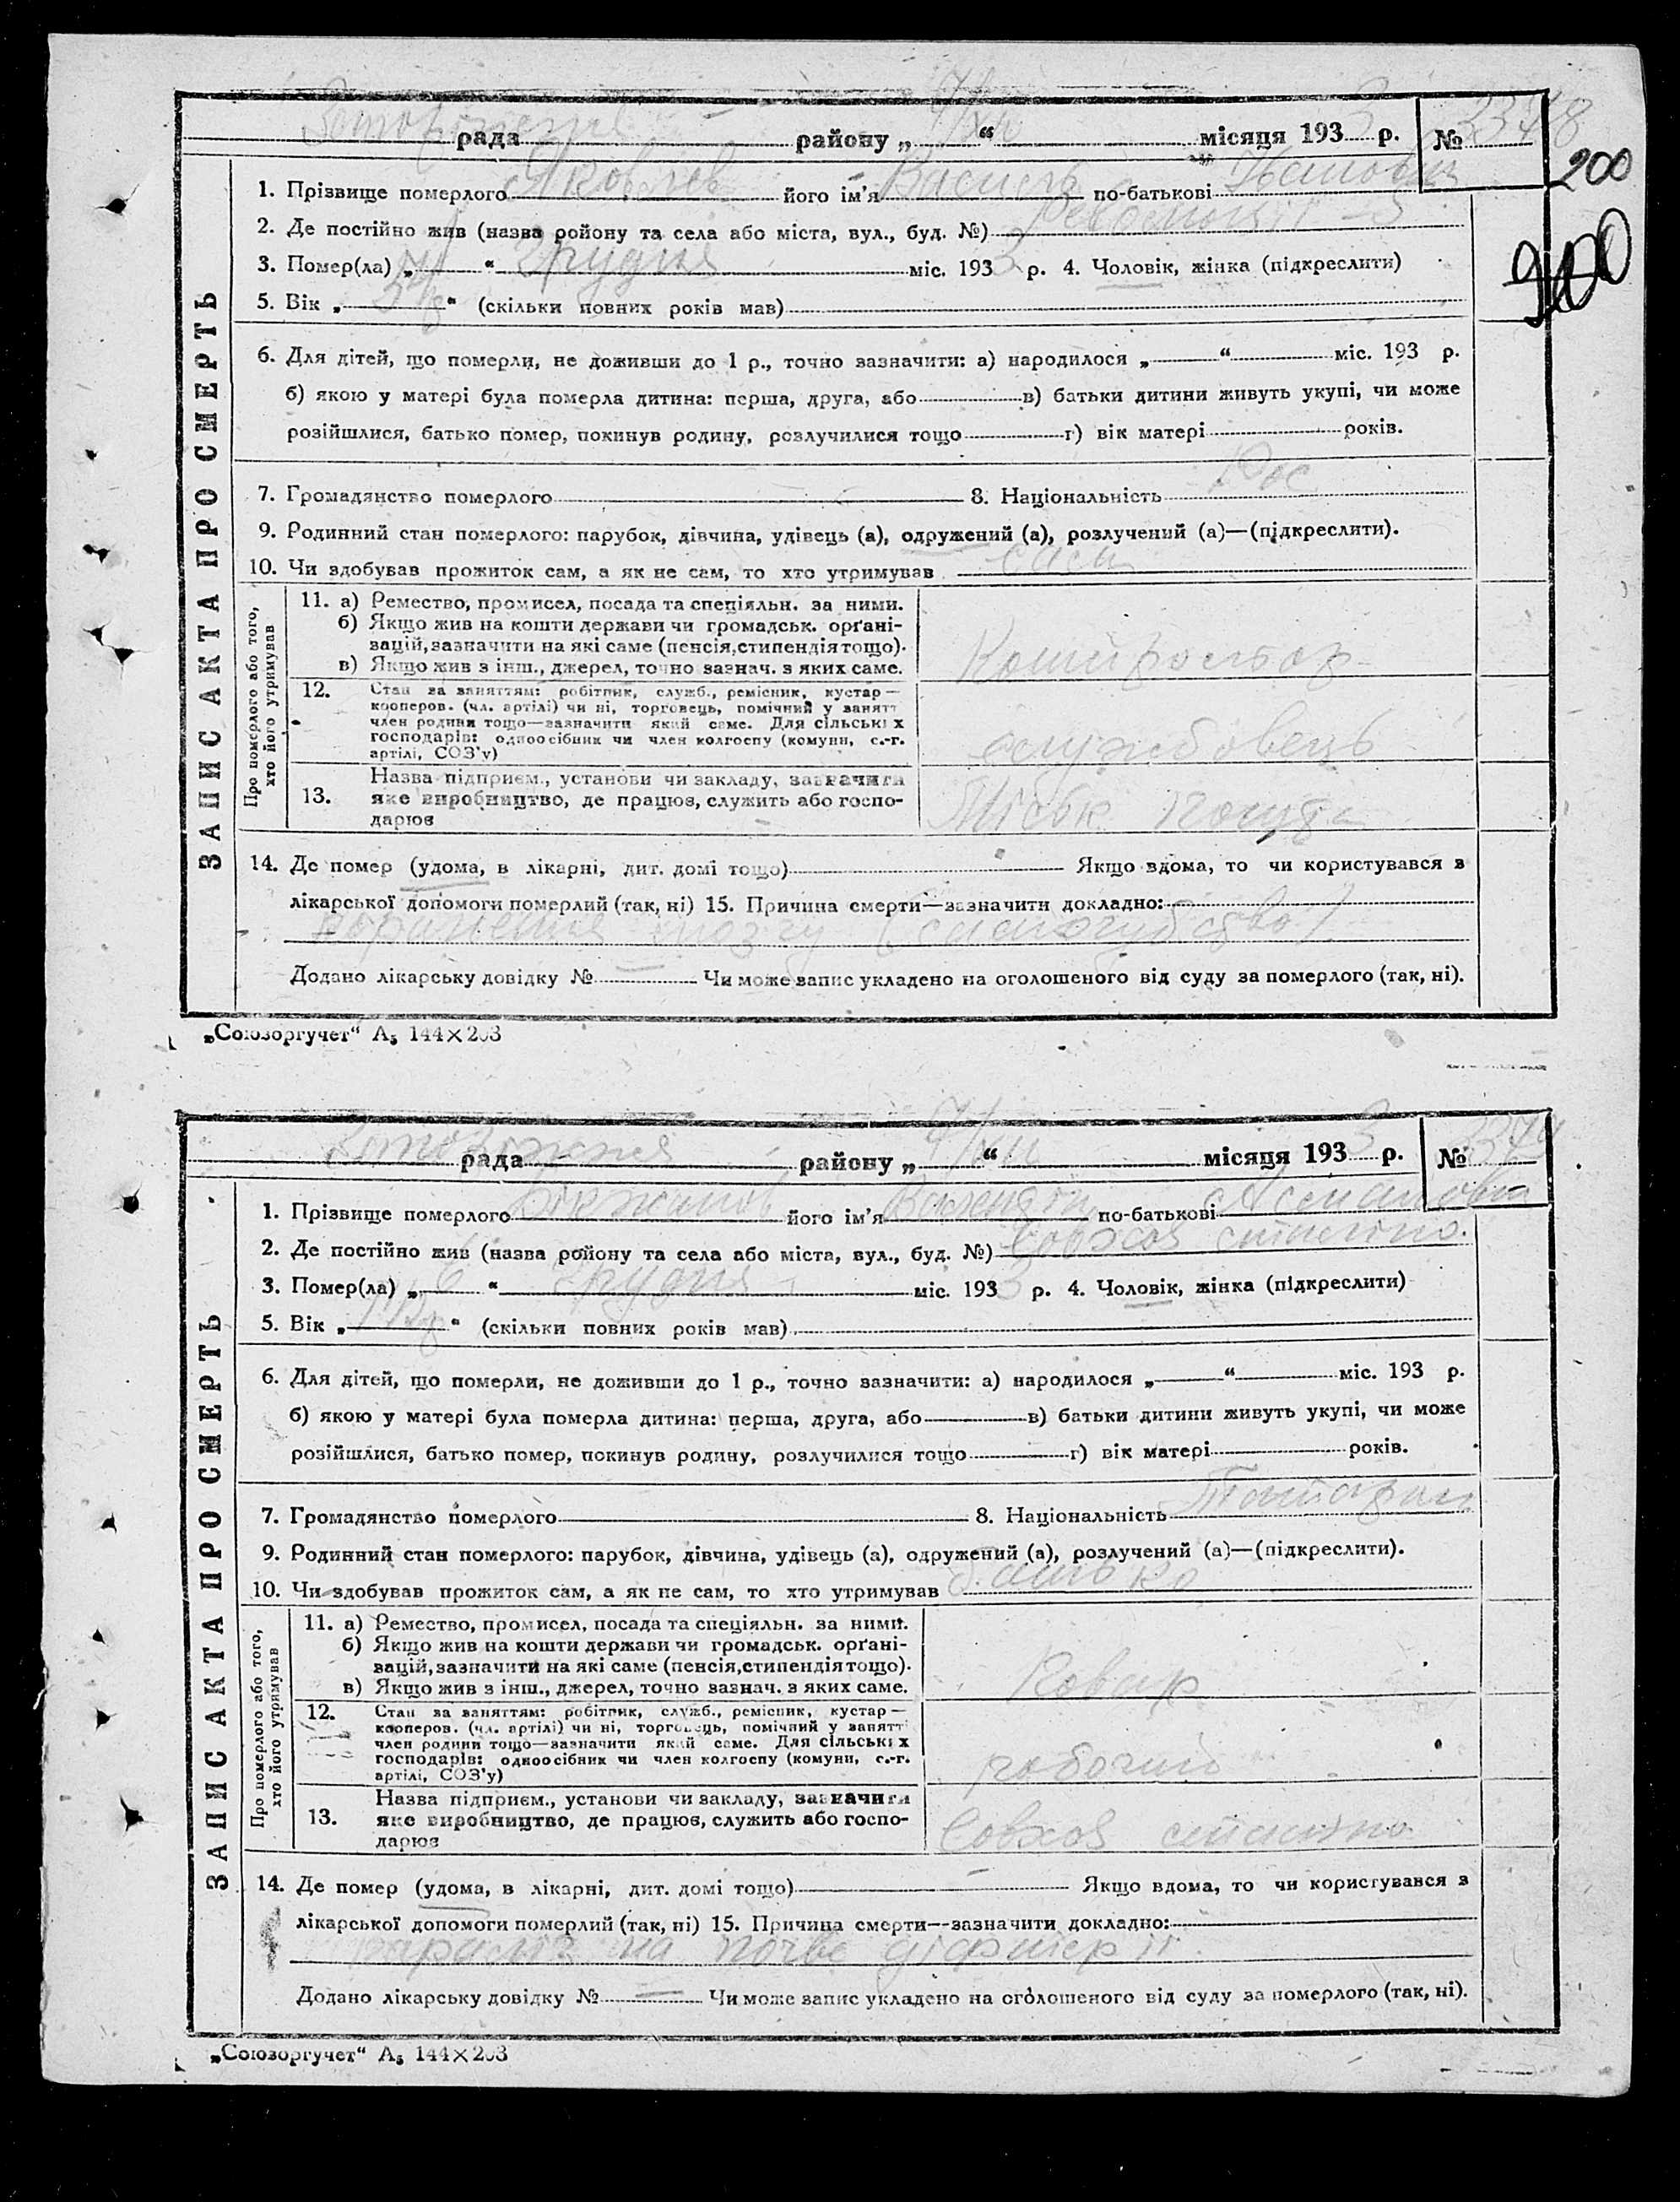 рада району „ 7/XII “ місяця 193 3 р. № 3378
200
ЗАПИС АКТА ПРО СМЕРТЬ
1. Прізвище померлого Яковлєв його ім'я Василь по-батькові Іванович
2. Де постійно жив (назва ройону та села або міста, вул., буд. №)
3. Помер(ла) „ “ Грудня міс. 193 3 р. 4. Чоловік, жінка (підкреслити)
5. Вік „ “ (скільки повних років мав)
6. Для дітей, що померли, не доживши до 1 р., точно зазначити: а) народилося „ “ міс. 193 р.
б) якою у матері була померла дитина: перша, друга, або в) батьки дитини живуть укупі, чи може
розійшлися, батько помер, покинув родину, розлучилися тощо г) вік матері років.
7. Громадянство померлого 8. Національність Рос
9. Родинний стан померлого: парубок, дівчина, удівець (а), одружений (а), розлучений (а)—(підкреслити).
10. Чи здобував прожиток сам, а як не сам, то хто утримував сам
Про померлого або того, хто його утримував
11. а) Ремество, промисел, посада та спеціяльн. за ними.
б) Якщо жив на кошти держави чи громадськ. орґані-
зацій, зазначити на які саме (пенсія, стипендія тощо).
в) Якщо жив з інш., джерел, точно зазнач. з яких саме.
12. Стан за заняттям: робітник, служб., ремісник, кустар —
кооперов. (чл. артілі) чи ні, торговець, помічний у занятт
член родини тощо—зазначити який саме. Для сільських
господарів: одноосібник чи член колгоспу (комуни, с.-г.
артілі, СОЗ'у)
службовець
Назва підприєм., установи чи закладу, зазначити
13. яке виробництво, де працює, служить або госпо-
дарює
Міськ Пошта
14. Де помер (удома, в лікарні, дит. домі тощо) Якщо вдома, то чи користувався з
лікарської допомоги померлий (так, ні) 15. Причина смерти—зазначити докладно:
мозгу (самогубство)
Додано лікарську довідку № — Чи може запис укладено на оголошеного від суду за померлого (так, ні).
„Союзоргучет“ А₅ 144×203
рада району „ 7/XII “ місяця 193 3 р. № 3379
ЗАПИС АКТА ПРО СМЕРТЬ
1. Прізвище померлого Біржанов його ім'я Валендін по-батькові
2. Де постійно жив (назва ройону та села або міста, вул., буд. №) Совхоз
3. Помер(ла) „ 6 “ Грудня міс. 193 3 р. 4. Чоловік, жінка (підкреслити)
5. Вік „ “ (скільки повних років мав)
6. Для дітей, що померли, не доживши до 1 р., точно зазначити: а) народилося „ “ міс. 193 р.
б) якою у матері була померла дитина: перша, друга, або в) батьки дитини живуть укупі, чи може
розійшлися, батько помер, покинув родину, розлучилися тощо г) вік матері років.
7. Громадянство померлого 8. Національність Татарин
9. Родинний стан померлого: парубок, дівчина, удівець (а), одружений (а), розлучений (а)—(підкреслити).
10. Чи здобував прожиток сам, а як не сам, то хто утримував батько
Про померлого або того, хто його утримував
11. а) Ремество, промисел, посада та спеціяльн. за ними.
б) Якщо жив на кошти держави чи громадськ. орґані-
зацій, зазначити на які саме (пенсія, стипендія тощо).
в) Якщо жив з інш., джерел, точно зазнач. з яких саме.
12. Стан за заняттям: робітник, служб., ремісник, кустар —
кооперов. (чл. артілі) чи ні, торговець, помічний у занятт
член родини тощо—зазначити який саме. Для сільських
господарів: одноосібник чи член колгоспу (комуни, с.-г.
артілі, СОЗ'у)
робочий
Назва підприєм., установи чи закладу, зазначити
13. яке виробництво, де працює, служить або госпо-
дарює
Совхоз
14. Де помер (удома, в лікарні, дит. домі тощо) — Якщо вдома, то чи користувався з
лікарської допомоги померлий (так, ні) 15. Причина смерти—зазначити докладно:
параліч на почве дифтерії
Додано лікарську довідку № — Чи може запис укладено на оголошеного від суду за померлого (так, ні).
„Союзоргучет“ А₅ 144×203